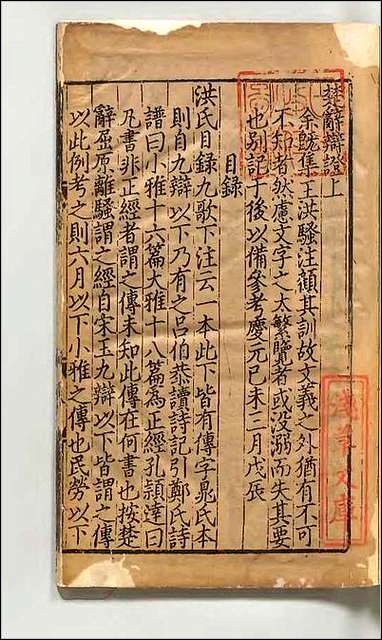 楚辭辯證上
余旣集王洪騷注顧其訓故文義之外猶有不可
不知者然慮文字之太繁覽者或没溺而失其要
也别記于後以備參考慶元己未三月戊辰
目録
洪氏目録九歌下注云一本此下皆有傳字晁氏本
則自九辯以下乃有之吕伯恭讀詩記引鄭氏詩
譜曰小雅十六篇大雅十八篇為正經孔頴達曰
凡書非正經者謂之傳未知此傳在何書也按楚
辭屈原離騷謂之經自宋玉九辯以下皆謂之傳
以此例考之則六月以下小雅之傳也民勞以下
淺草文庫